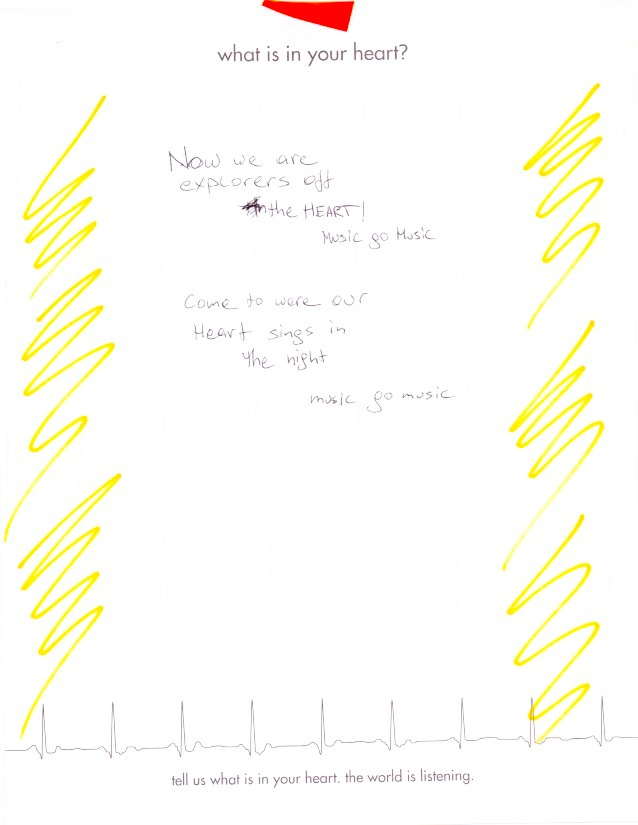 what is in your heart?
Now we are
explorers off
the HEART!
Music go Music
Come to were our
Heart sings in
the night
music go music
tell us what is in your heart. the world is listening.